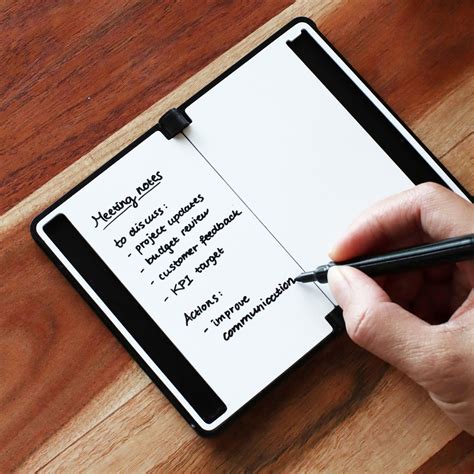 Meeting notes
to discuss:
- project updates
- budget review
- customer feedback
- KPI target
Actions:
- improve
communication